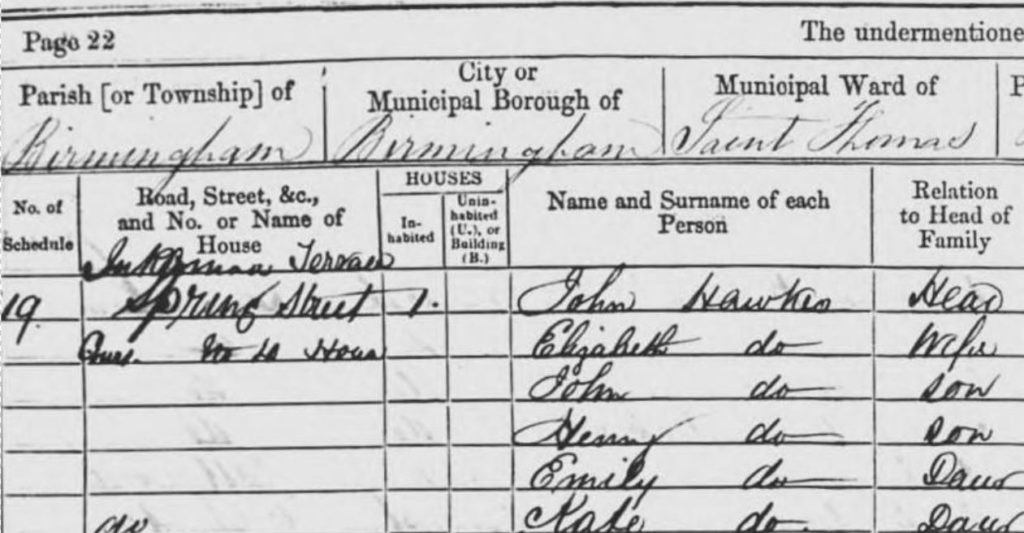 Page 22 The undermentione
Parish [or Township] of City or Municipal Borough of Municipal Ward of P
Birmingham Birmingham Saint Thomas
No. of Schedule Road, Street, &c., and No. or Name of House HOUSES In-habited Unin-habited (U.), or Building (B.) Name and Surname of each Person Relation to Head of Family
Inkerman Terrace
19 Spring Street 1. John Hawkes Head
No Hous Elizabeth do Wife
John do son
Henry do son
Emily do Daur
do Kate do. Daur